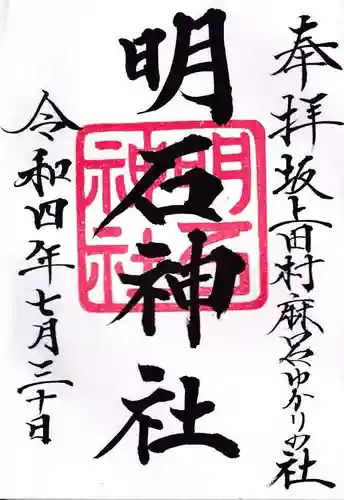 奉拝 坂上田村麻呂ゆかりの社
明石神社
明石神社
令和四年七月三十日